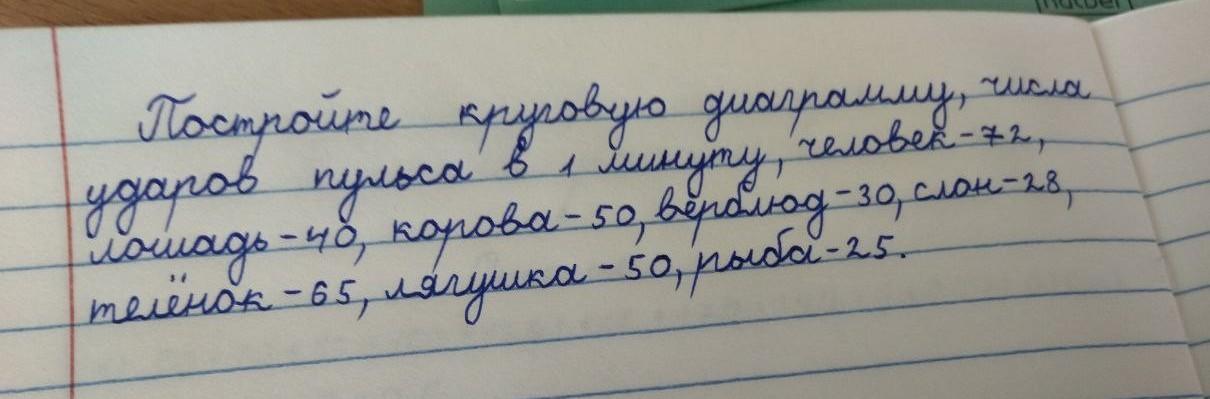 Постройте круговую диаграмму, числа
ударов пульса в 1 минуту, человек-72,
лошадь-40, корова-50, верблюд-30, слон-28,
телёнок-65, лягушка-50, рыба-25.